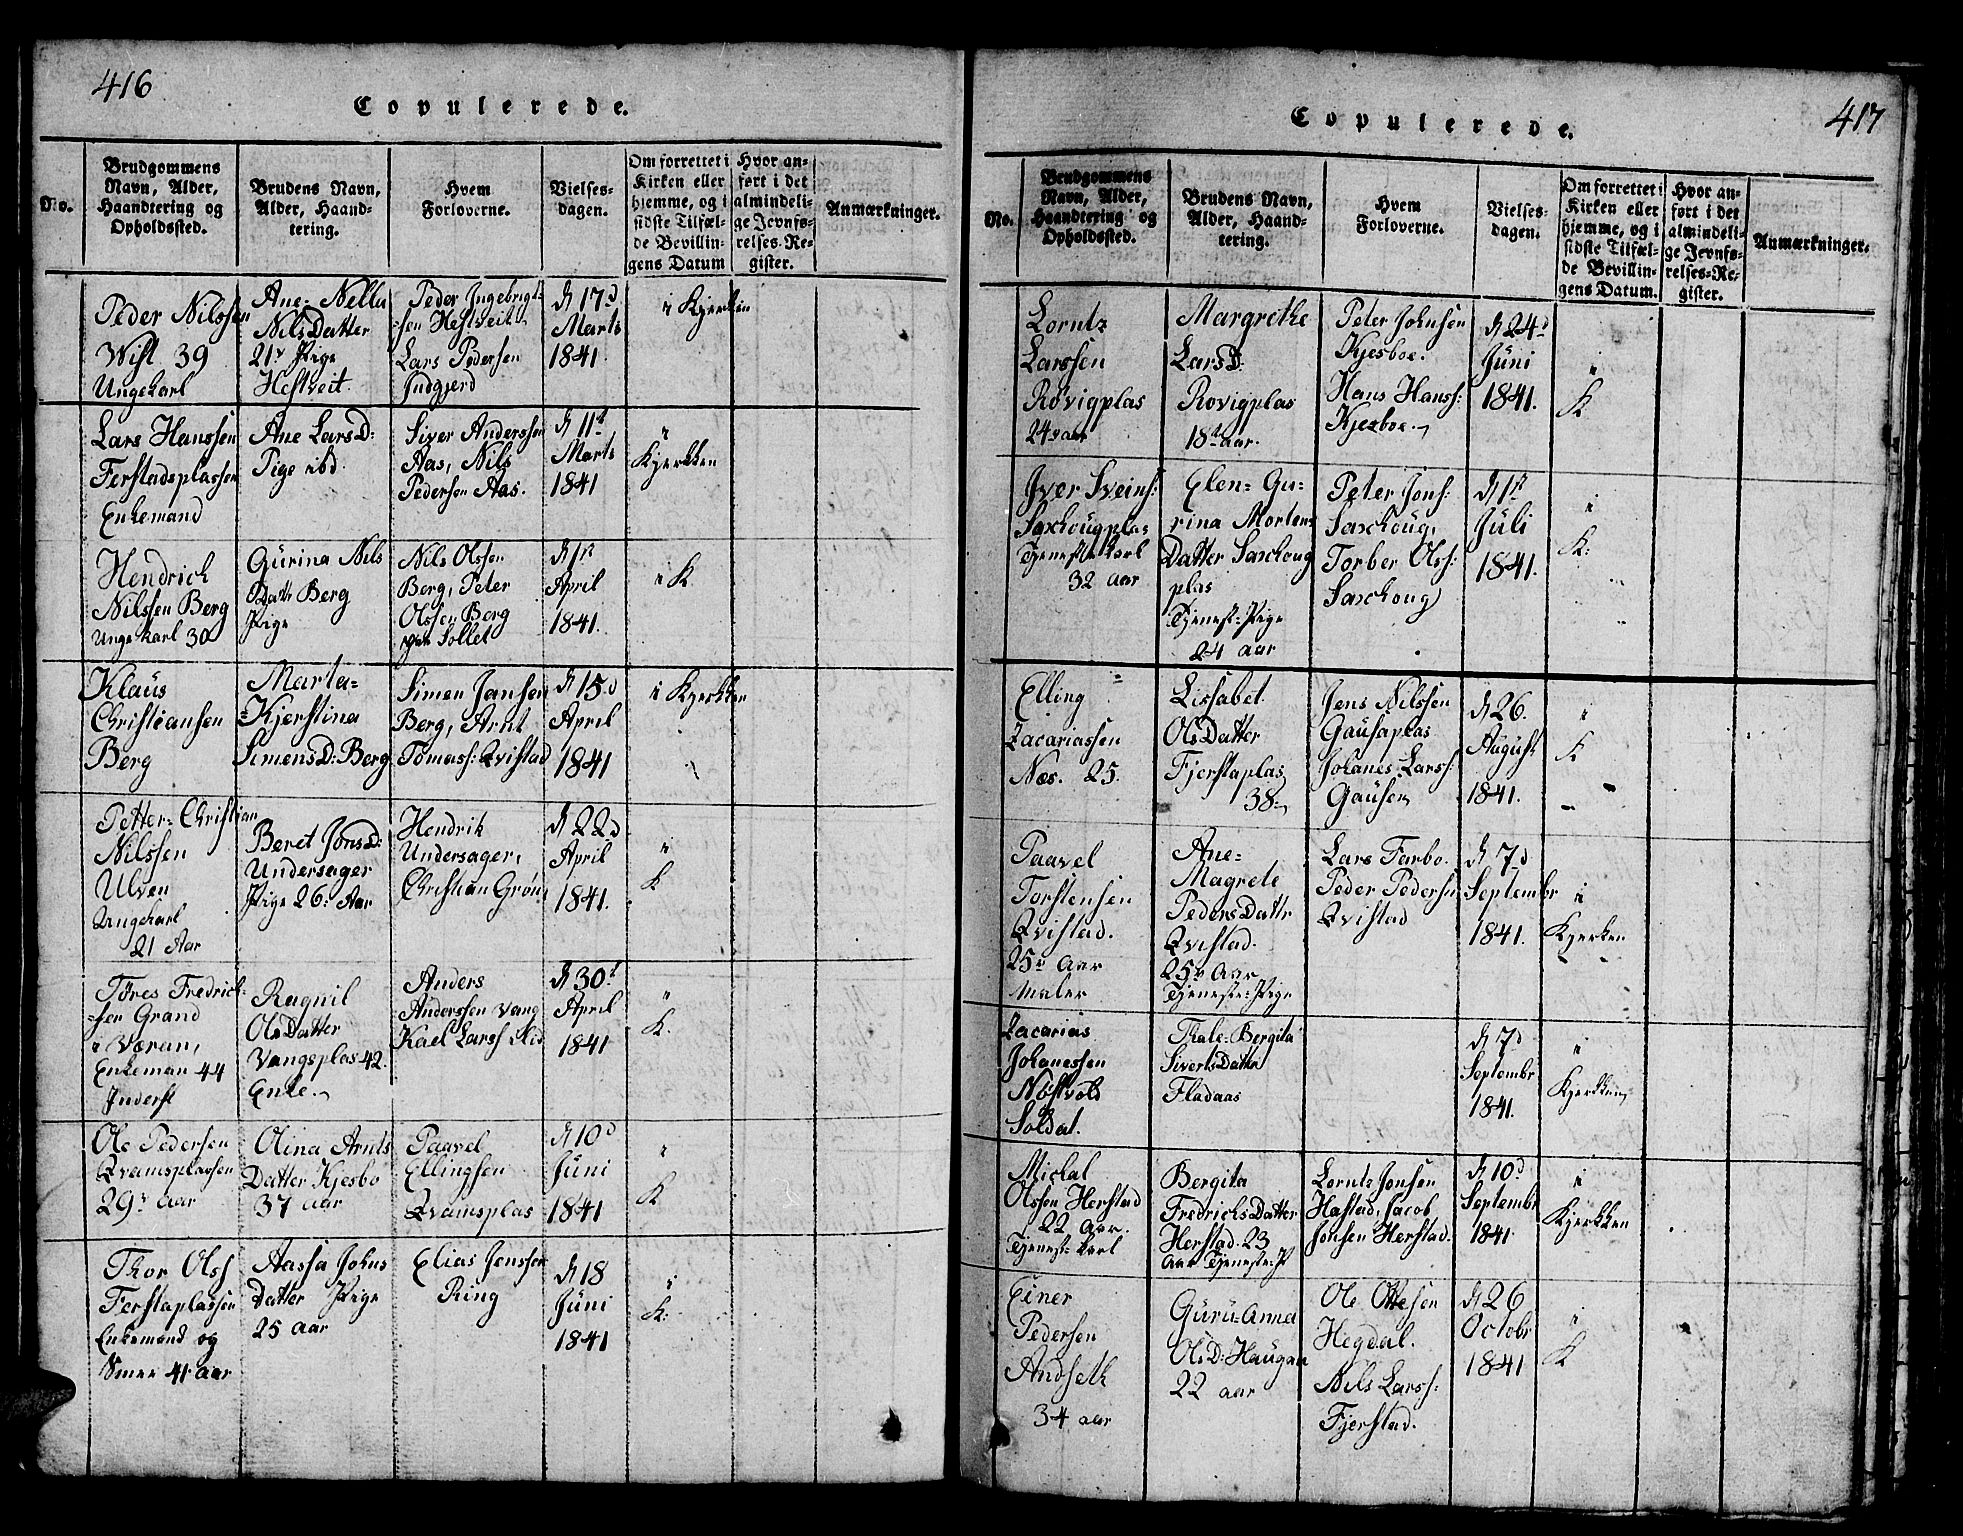 416
Copulerede.
No.
Brudgommens
Navn, Alder,
Haandtering og
Opholdssted.
Brudens Navn,
Alder, Haand-
tering.
Hvem
Forloverne.
Vielses-
dagen.
Om forrettet i
Kirken eller
hjemme, og i
sidste Tilfæl-
de Bevillin-
gens Datum
Hvor an-
ført i det
almindeli-
ge Jevnfø-
relses-Re-
gister.
Anmærkninger.
Peder Nilssen
Wist 39
Ungekarl
Ane-Nella
NilsDatter
21 Pige
Hestveit.
Peder Ingebrigt-
-sen Hestveit
Lars Pedersen
Indgjerd
d 17d
Marts
1841.
i Kjerkken
Lars Hanssen
Ferstadsplassen
Enkemand
Ane LarsD:
Pige ibd.
Siver Anderssen
Aas, Nils
Pedersen Aas.
d 11t
Marts
1841
"
Kjerkken
Hendrich
Nilssen Berg
Unge karl 30
Gurina Nils
Dattr Berg
Pige
Nils Olssen
Berg, Peter
Olssen Berg
Sollet
d 1st
April
1841.
i K
Klaus
Christiansen
Berg
Marta=
=Kjerstina
SimensD: Berg
Simen Jansen
Berg, Arnt
Tomass: Qvistad
d 15d
April
1841
i Kjerkken
Petter=Christian
Nilssen
Ulven
Ungekarl
21 Aar
Beret JonsD:
Undersager
Pige 26: Aar
Hendrik
Undersager,
Christian Grøn
d 22d
April
1841.
"
K
Tøres Fredrich-
=sen Grand
i Væran,
Enkeman 44
Inderst
Ragnil
OlsDatter
Vangsplas 42.
Enke.
Anders
Anderssen Vang
Kael Larss
d 30t
April
1841
"
K.
Ole Pedersen
Qvamsplassen
29 aar
Olina Arnts
Datter Kjesbo
37 aar
Paavel
Ellingsen
Qvamsplas
d 10d
Juni
1841
"
K
Thor Olss
Ferstaplassen
Enkemand og
Smee 41 aar
Aassa Johns
Datter Pige
25 aar
Elias Jenssen
Ring
d 18
Juni
1841
"
K:
417
Copulerede.
No.
Brudgommens
Navn, Alder,
Haandtering og
Opholdssted.
Brudens Navn,
Alder, Haand-
tering.
Hvem
Forloverne.
Vielses-
dagen.
Om forrettet i
Kirken eller
hjemme, og i
sidste Tilfæl-
de Bevillin-
gens Datum.
Hvor an-
ført i det
almindeli-
ge Jevnfø-
relses-Re-
gister.
Anmærkninger.
Lorntz
Larssen
Røvigplas
24 aar
Margrethe
LarsD:
Rovigplas
18 aar.
Peter Johnsen
Kjesboe.
Hans Hanss:
Kjesboe.
d 24d
Juni
1841.
"
K
Iver Sveins:
Saxhougplas
Tjeneste karl
32 aar
Elen=Gu-
rina Mortens
Datter Saxhoug
plas
Tjenest=Pige
24 aar
Peter Jons:
Saxhoug,
Torber Olss:
Saxhoug
d 1st
Juli
1841.
"
K:
Elling
Zacariassen
Næs. 25.
Lissabet
OlsDatter
Fjerstaplas
38
Jens Nilssen
Gausaplas
Johanes Larss:
Gausen
d 26.
August
1841.
"
K
Paavel
Torstensen
Qvistad.
25 aar
Maler
Ane=
Magrete
PedersDattr
Qvistad.
25 Aar
Tjeneste=Pige
Lars Farbo.
Peder Pedersen
Qvistad
d 7d
Septembr
1841.
i
Kjerken
Zacarias
Johanessen
Nøstvold
Soldat.
Thale=Bergita
SivertsDatter
Fladaas
d 7d
Septembr
1841.
"
Kjerkken
Mickal
Olssen Herstad
22 Aar.
Tjenest=karl
Bergita
FredrichsDatter
Herstad 23
Aar Tjeneste=P
Lorntz Jonsen
Hastad, Jacob
Jonsen Herstad.
d 10d
Septembr
1841
i
Kjerkken
Einer
Pedersen
Andseth
34 aar
Guru=Anna
OlsD: Haugan
22 aar
Ole Ottesen
Hegdal.
Nils Larss:
Fjerstad.
d 26
Octobr
1841
"
K